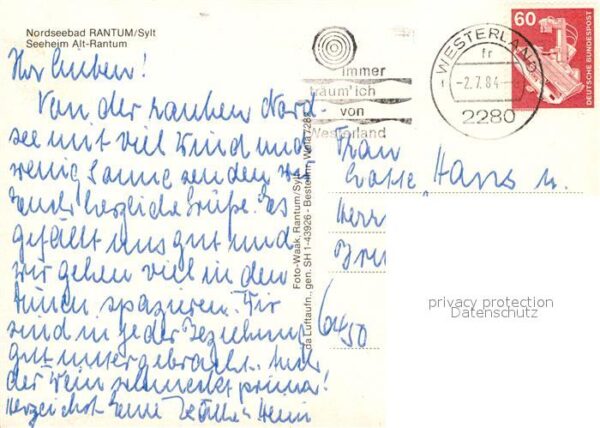 Nordseebad RANTUM/Sylt
Seeheim Alt-Rantum
Ihr Lieben!
Von der rauhen Nord-
see mit viel Wind und
wenig Sonne senden wir
Euch herzliche Grüße. Es
gefällt uns gut und
wir gehen viel in den
Dünen spazieren. Wir
sind in jeder Beziehung
gut untergebracht. Auch
der Wein schmeckt prima!
Herzlichst Eure
Foto-Waak, Rantum/Sylt
da Luftaufn., gen. SH 1-43926 - Bestellnr. Wa
immer
träum'ich
von
Westerland
WESTERLAND
fr
-2.7.84
2280
60
DEUTSCHE BUNDESPOST
Frau
Hans u.
Herr
6450
privacy protection
Datenschutz